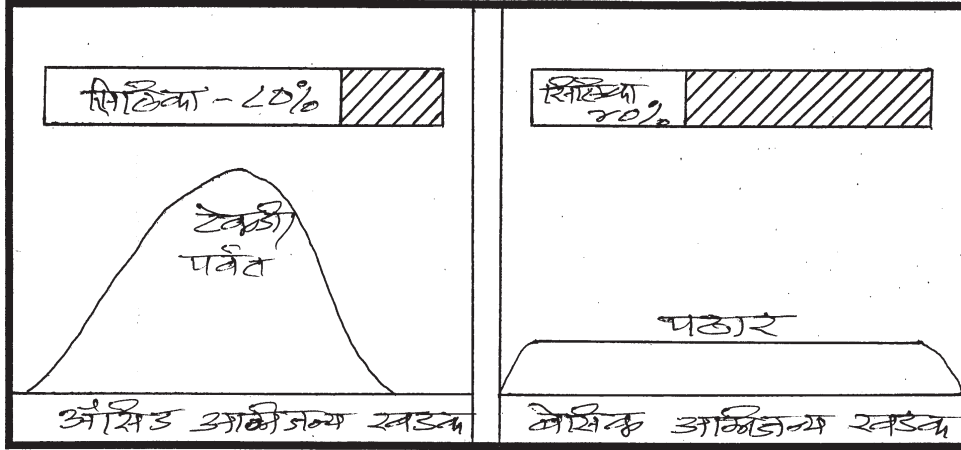 सिलिका - ८०%
टेकडी/
पर्वत
ॲसिड अग्निजन्य खडक
सिलिका
२०%
पठार
बेसिक अग्निजन्य खडक